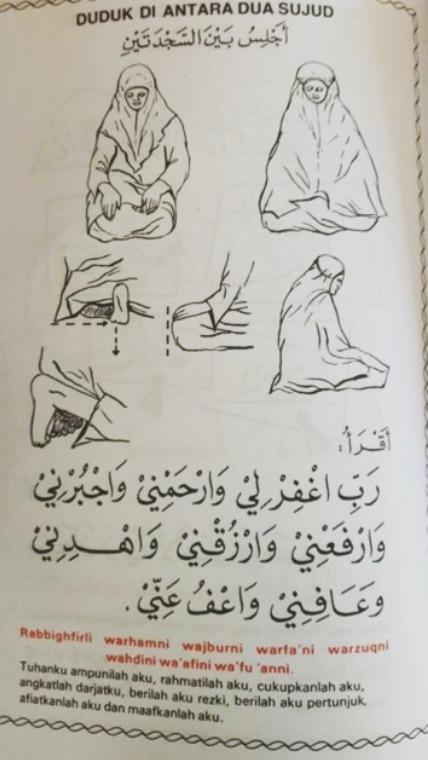 DUDUK DI ANTARA DUA SUJUD
أَجْلِسُ بَيْنَ السَّجْدَتَيْنِ
أَقْرَأُ :
رَبِّ اغْفِرْ لِيْ وَارْحَمْنِيْ وَاجْبُرْنِيْ
وَارْفَعْنِيْ وَارْزُقْنِيْ وَاهْدِنِيْ
وَعَافِنِيْ وَاعْفُ عَنِّيْ .
Rabbighfirli warhamni wajburni warfa'ni warzuqni
wahdini wa'afini wa'fu 'anni.
Tuhanku ampunilah aku, rahmatilah aku, cukupkanlah aku,
angkatlah darjatku, berilah aku rezki, berilah aku pertunjuk,
afiatkanlah aku dan maafkanlah aku.